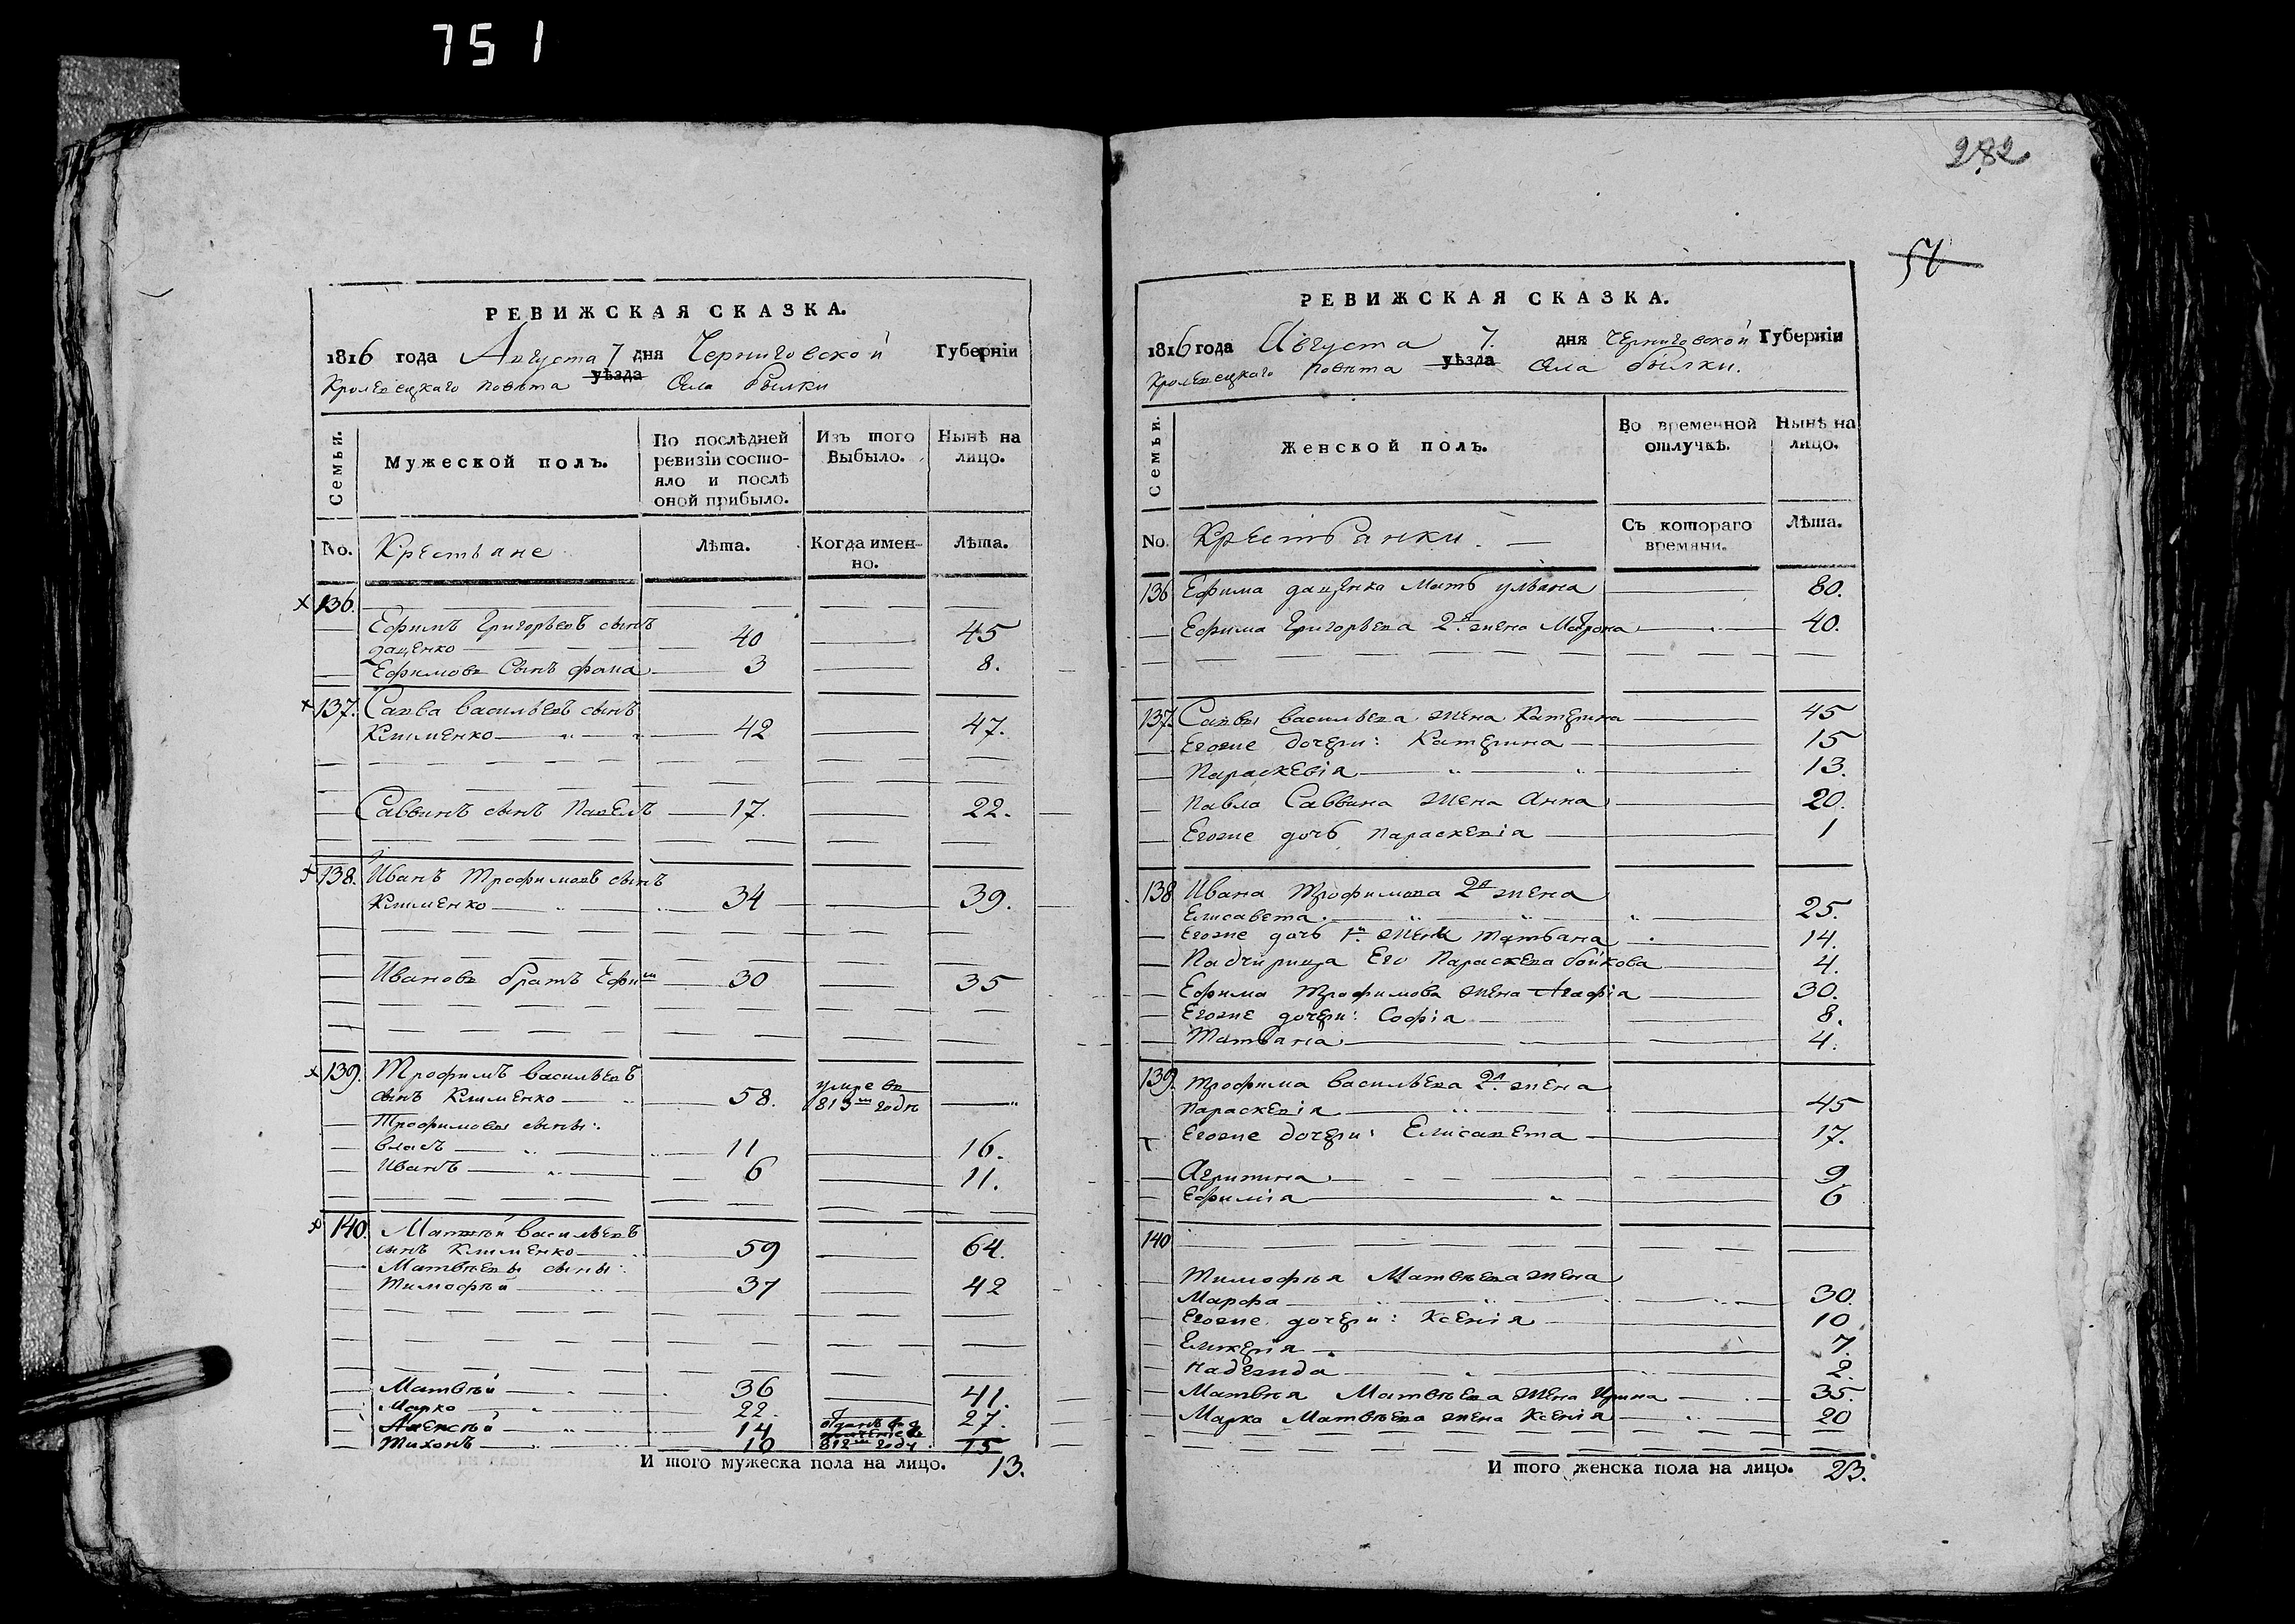 751
РЕВИЖСКАЯ СКАЗКА.
1816 года Августа 7 дня Черниговской Губерніи
Кролевецкаго повѣта уѣзда Села Билки
Семьи.
Мужеской полъ.
По послѣдней ревизіи состояло и послѣ оной прибыло.
Изъ того Выбыло.
Нынѣ на лицо.
No. Крестьяне Лѣта. Когда именно. Лѣта.
136.
Ефимъ Григорьевъ сынъ
даценко 40 45
Ефимовъ Сынъ фома 3 8.
137. Савва васильевъ сынъ
Клименко 42 47.
Саввинъ сынъ Павелъ 17. 22.
138. Иванъ Трофимовъ сынъ
Клименко 34 39.
Ивановъ братъ Ефимъ 30 35
139. Трофимъ васильевъ
сынъ Клименко 58. умре въ 813м году
Трофимовы сыны:
власъ 11 16.
Иванъ 6 11.
140. Матвѣй васильевъ
сынъ Клименко 59 64.
Матвѣевы сыны:
Тимофѣй 37 42
Матвѣй 36 41.
Марко 22. 27.
Алексѣй 14 отданъ въ
Тихонъ 10 812м году 15
И того мужеска пола на лицо. 13.
282
РЕВИЖСКАЯ СКАЗКА.
1816 года Августа 7. дня Черниговской Губерніи
Кролевецкаго Повѣта уѣзда Села билки.
Семьи.
Женской полъ.
Во временной отлучкѣ.
Нынѣ на лицо.
No. Крестьянки. Съ котораго времяни. Лѣта.
136 Ефима даценка Мать ульяна 80.
Ефима Григорьева 2я жена Матрона 40.
137. Саввы васильева жена Катерина 45
Егоже дочери: Катерина 15
Параскевія 13.
Павла Саввина жена Анна 20.
Егоже дочь параскевія 1
138 Ивана Трофимова 2я жена
Елисавета 25.
Егоже дочь 1й жены татьяна 14.
Падчирица Его Параскева бойкова 4.
Ефима Трофимова жена Агафія 30.
Егоже дочери: Софія 8.
Татьяна 4.
139. трофима васильева 2я жена
параскевія 45
Егоже дочери: Елисавета 17.
Агрипина 9
Ефимія 6
140
Тимофѣя Матвѣева жена
Марфа 30.
Егоже дочери: Ксенія 10
Гликерія 7.
надежда 2.
Матвѣя Матвѣева жена Ирина 35.
Марка Матвѣева жена Ксенія 20
И того женска пола на лицо. 23.